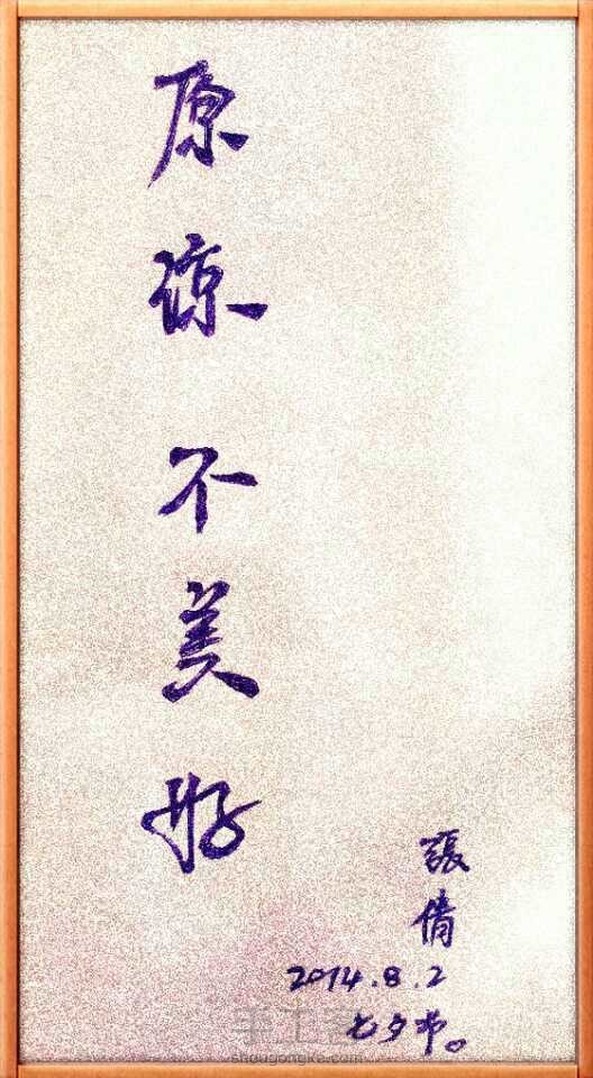 原谅不美好
張倩
2014.8.2
七夕节。
手工客
shougongke2.com